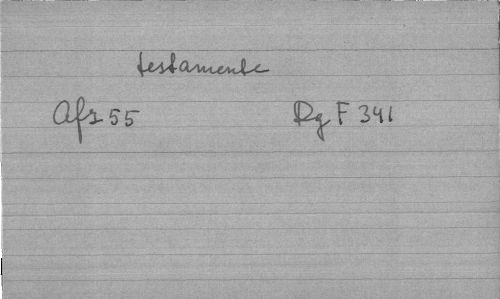 testamente
Afz 55 Rg F 341